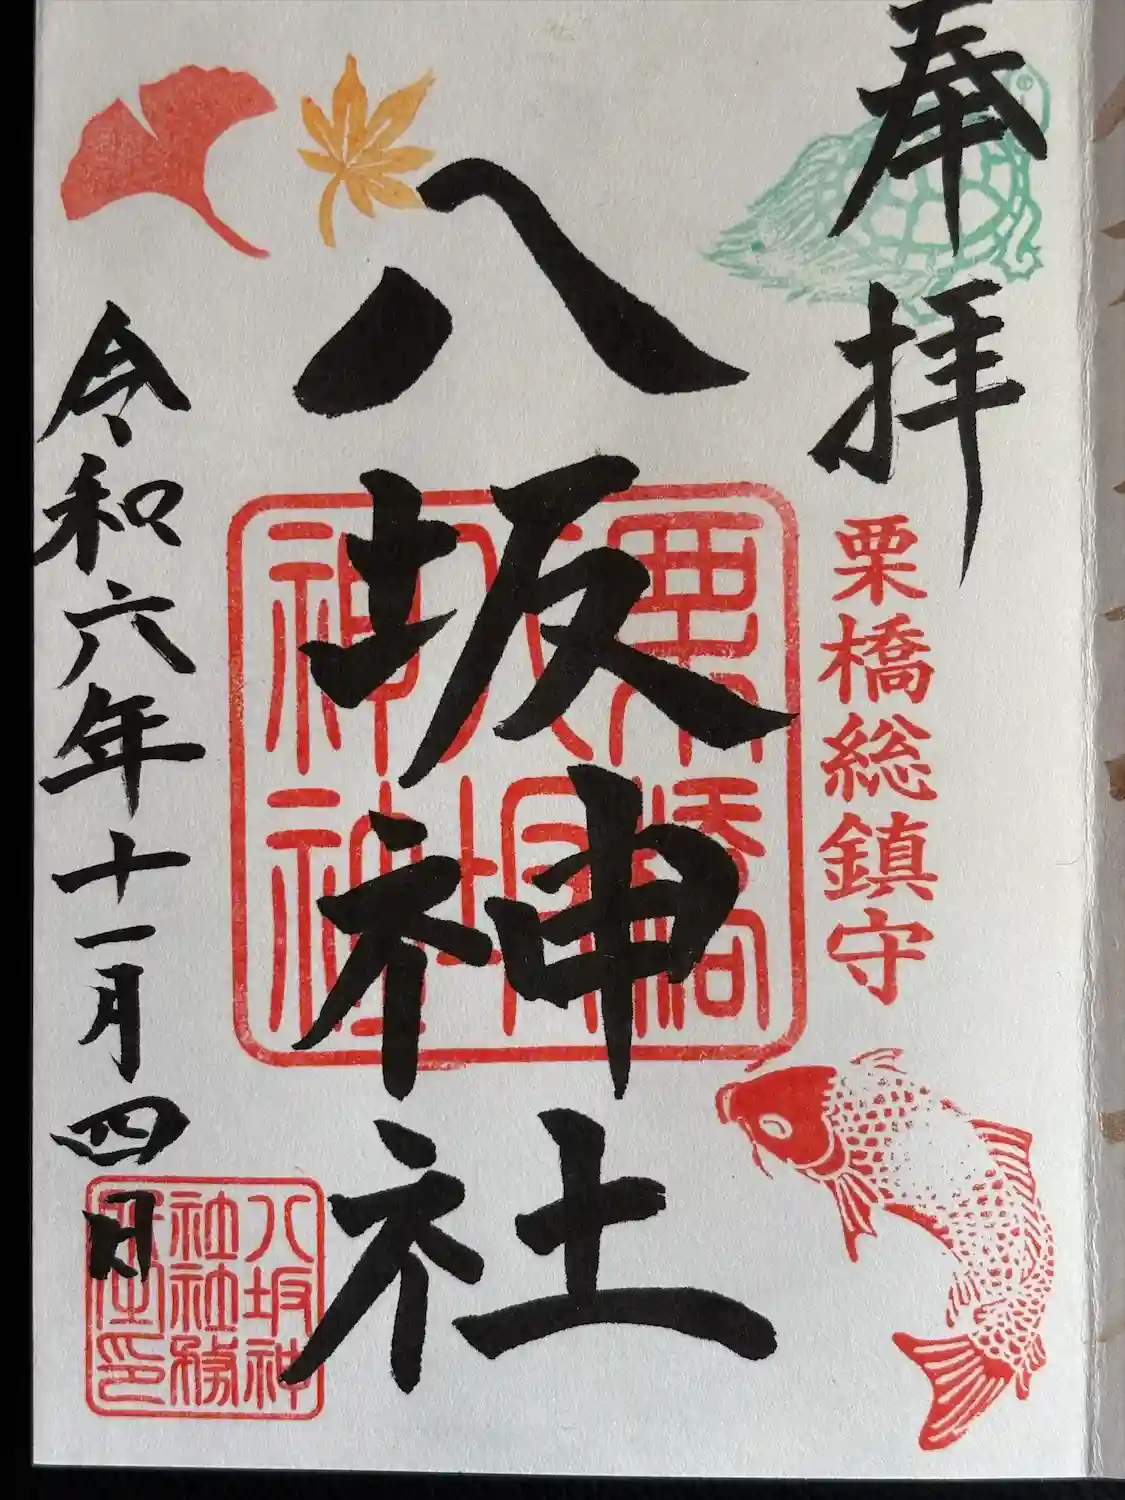 奉拝
栗橋総鎮守
八坂神社
栗橋
八坂
神社
令和六年十一月四日
八坂神
社社務